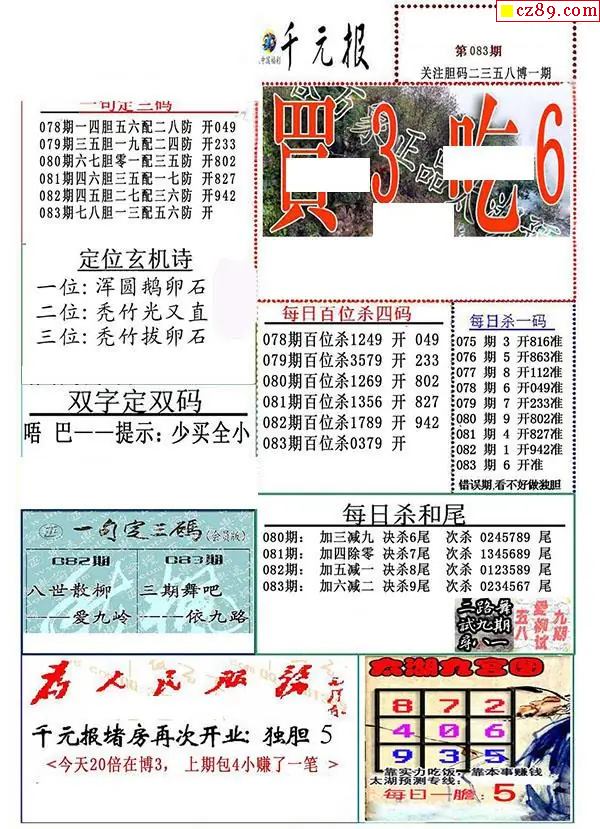 cz89.com
千元报
第083期
关注胆码二三五八博一期
一句定三码
078期一四胆五六配二八防 开049
079期三五胆一九配二四防 开233
080期六七胆零一配三五防 开802
081期四六胆三五配一七防 开827
082期四五胆二七配三六防 开942
083期七八胆一三配五六防 开
買 3 吃 6
定位玄机诗
一位: 浑圆鹅卵石
二位: 秃竹光又直
三位: 秃竹拔卵石
每日百位杀四码
078期百位杀1249 开 049
079期百位杀3579 开 233
080期百位杀1269 开 802
081期百位杀1356 开 827
082期百位杀1789 开 942
083期百位杀0379 开
每日杀一码
075 期 3 开816准
076 期 5 开863准
077 期 8 开112准
078 期 6 开049准
079 期 7 开233准
080 期 9 开802准
081 期 4 开827准
082 期 1 开942准
083 期 6 开准
错误期,看不好做独胆
双字定双码
唔 巴——提示: 少买全小
每日杀和尾
080期: 加三减九 决杀6尾 次杀 0245789 尾
081期: 加四除零 决杀7尾 次杀 1345689 尾
082期: 加五减一 决杀8尾 次杀 0123589 尾
083期: 加六减二 决杀9尾 次杀 0234567 尾
一句定三碼(会员版)
082期 083期
八世散柳 三期舞吧
——爱九岭 ——依九路
为人民服务
千元报堵房再次开业: 独胆 5
<今天20倍在博3, 上期包4小赚了一笔 >
太湖九宫图
8 7 2
4 0 6
9 3 5
靠实力吃饭,靠本事赚钱
太湖预测专线:
每日一胆: 5